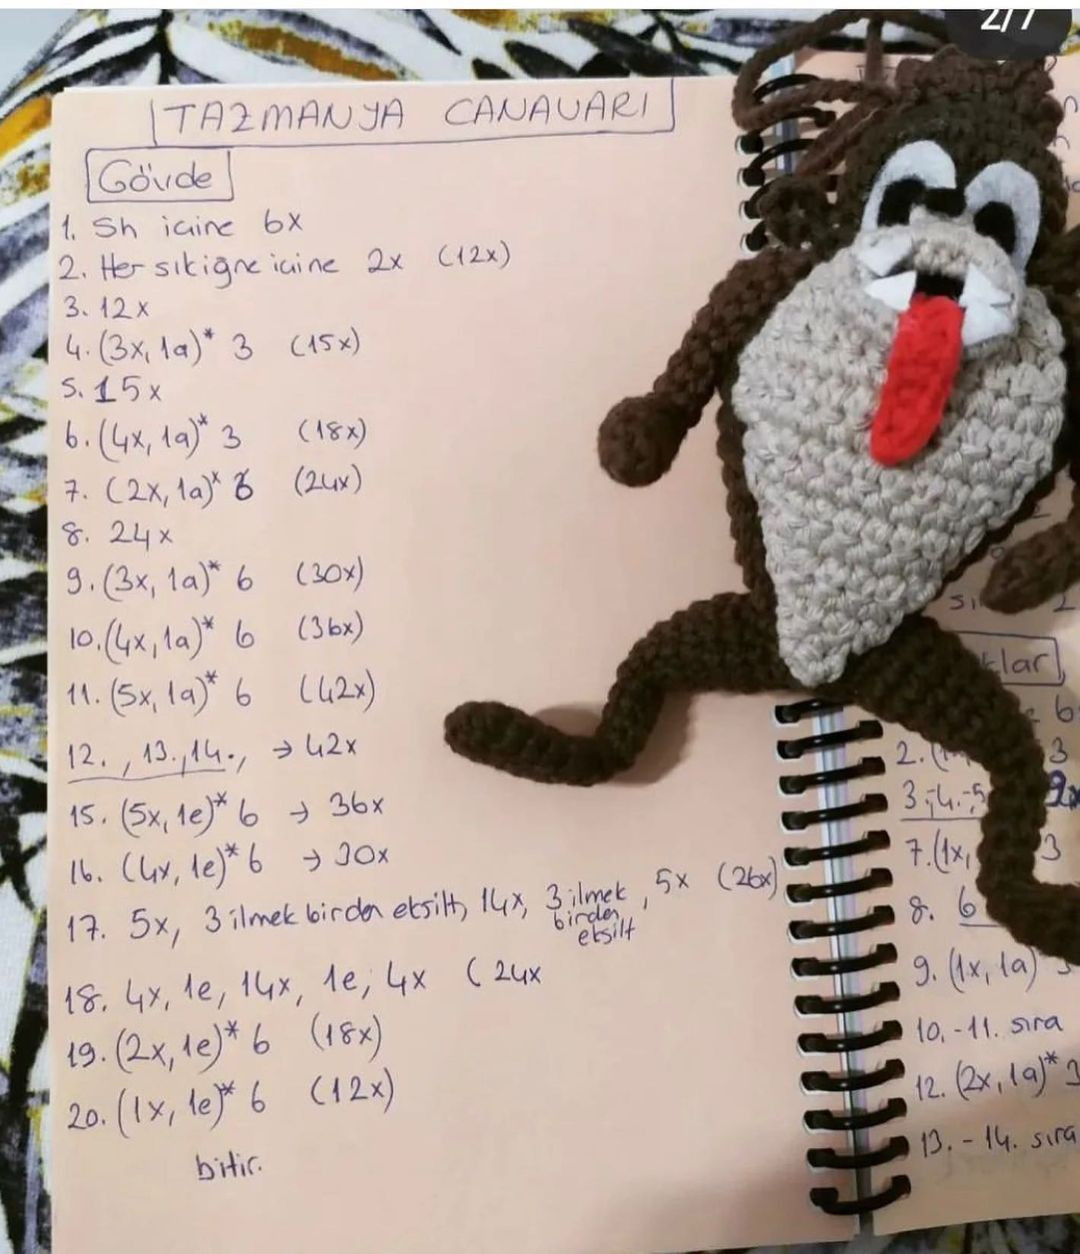 2/7
TAZMANYA CANAVARI
Gövde
1. Sh içine 6x
2. Her sık iğne içine 2x (12x)
3. 12x
4. (3x, 1a)* 3 (15x)
5. 15x
6. (4x, 1a)* 3 (18x)
7. (2x, 1a)* 6 (24x)
8. 24x
9. (3x, 1a)* 6 (30x)
10. (4x, 1a)* 6 (36x)
11. (5x, 1a)* 6 (42x)
12. , 13., 14., → 42x
15. (5x, 1e)* 6 → 36x
16. (4x, 1e)* 6 → 30x
17. 5x, 3 ilmek birden eksilt, 14x, 3 ilmek birden eksilt, 5x (26x)
18. 4x, 1e, 14x, 1e, 4x (24x
19. (2x, 1e)* 6 (18x)
20. (1x, 1e)* 6 (12x)
bitir.
klar
2. 3
3.-4.-5
7. (1x, 3
8. 6
9. (1x, 1a) 3
10.-11. sıra
12. (2x, 1a)* 3
13.-14. sıra